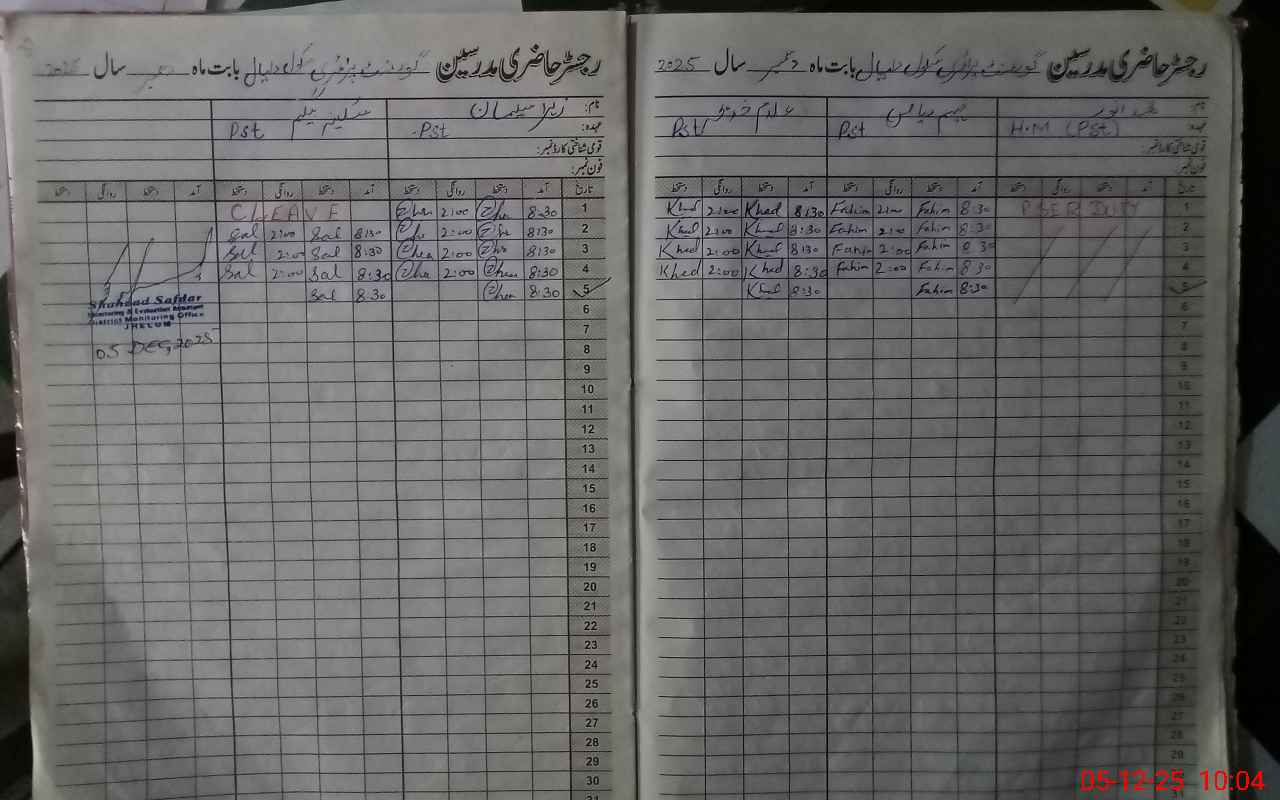 رجسٹر حاضری مدرسین گورنمنٹ پرائمری سکول بابت ماہ دسمبر سال 2025
نام:
عہدہ: H.M (Pst) Pst Pst
قومی شناختی کارڈ نمبر:
فون نمبر:
تاریخ آمد دستخط روانگی دستخط آمد دستخط روانگی دستخط آمد دستخط روانگی دستخط
1 PSER DUTY 8:30 Fahim 2:00 Fahim 8:30 Khed 2:00
2 8:30 Fahim 2:00 Fahim 8:30 2:00
3 8:30 Fahim 2:00 Fahim 8:30 2:00 Khed
4 8:30 Fahim 2:00 Fahim 8:30 Khed 2:00 Khed
5 8:30 Fahim 8:30
6
7
8
9
10
11
12
13
14
15
16
17
18
19
20
21
22
23
24
25
26
27
28
29
رجسٹر حاضری مدرسین گورنمنٹ پرائمری سکول بابت ماہ دسمبر سال 2025
نام: سکینہ بیگم
عہدہ: Pst Pst
قومی شناختی کارڈ نمبر:
فون نمبر:
تاریخ آمد دستخط روانگی دستخط آمد دستخط روانگی دستخط آمد دستخط روانگی دستخط
1 8:30 2:00 C/LEAVE
2 8:30 2:00 8:30 Sal 2:00 Sal
3 8:30 2:00 8:30 Sal 2:00 Sal
4 8:30 2:00 8:30 Sal 2:00 Sal
5 8:30 8:30 Sal
6
7
8
9
10
11
12
13
14
15
16
17
18
19
20
21
22
23
24
25
26
27
28
29
30
Shahzad Safdar
Monitoring & Evaluation Assistant
District Monitoring Office
JHELUM
05 DEC, 2025
05-12-25 10:04